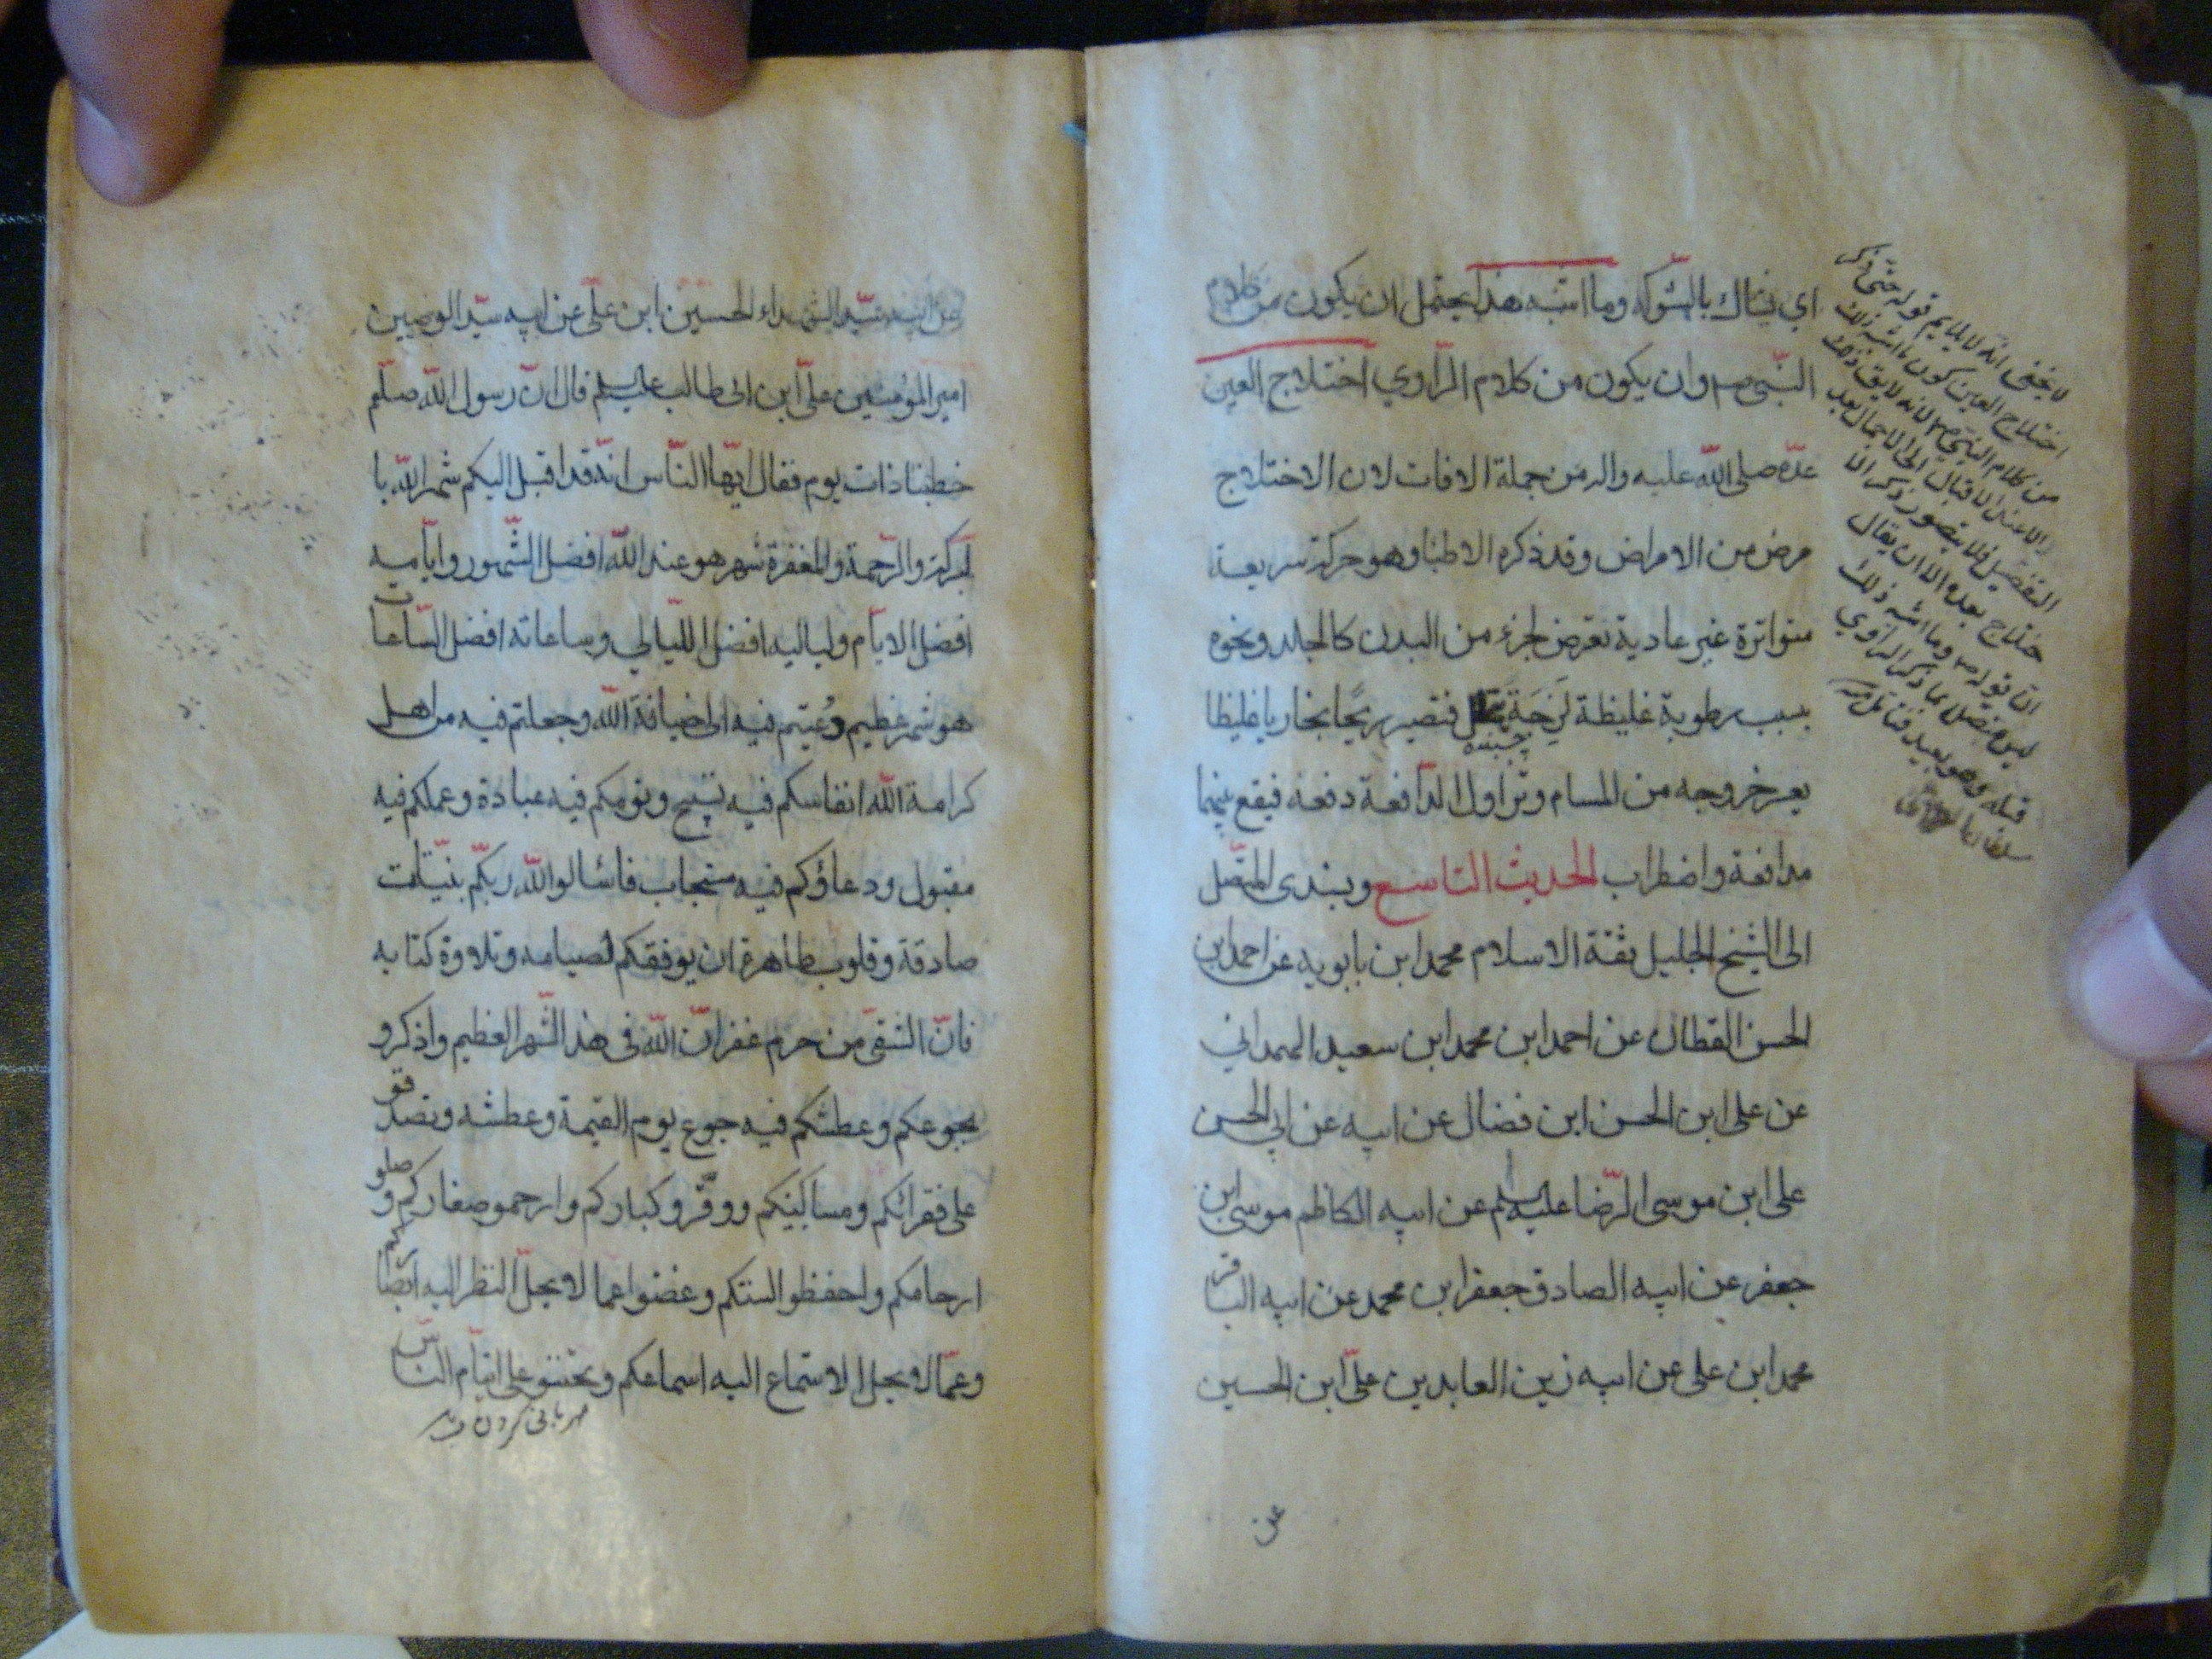 اي يشاك بالشوكه وما اشبه هذا يحتمل ان يكون من كلام
النبي ص وان يكون من كلام الراوي اختلاج العين
عدّه صلى الله عليه واله من جملة الافات لان الاختلاج
مرض من الامراض وقد ذكره الاطبا وهو حركة سريعة
متواترة غير عادية تعرض لجزء من البدن كالجلد ونحوه
بسبب رطوبة غليظة لزجة فتصير ريحًا بخاريا غليظا
چسبنده
يعسر خروجه من المسام وتزاول الدافعة دفعه فيقع بينهما
مدافعة واضطراب الحديث التاسع وبسندى المتصل
الى الشيخ الجليل ثقة الاسلام محمد ابن بابويه عن احمد ابن
الحسن القطان عن احمد ابن محمد ابن سعيد الهمداني
عن على ابن الحسن ابن فضال عن ابيه عن ابي الحسن
على ابن موسى الرّضا عليه السلم عن ابيه الكاظم موسى ابن
جعفر عن ابيه الصادق جعفر ابن محمد عن ابيه الباقر
محمد ابن على عن ابيه زين العابدين علىّ ابن الحسين
عن
لا يخفى انه لا يلايم قوله حتى ذكر
اختلاج العين كون ما اشبه ذلك
من كلام النبي ص لانه لا يق ذلك
الا عند الاقبال الى الاجمال بعد
التفصيل فلا يتصور ذكر الا
ختلاج بعده الا ان يقال
ان قوله ص وما اشبه ذلك
ليس متصل بما ذكر الراوي
قبله وهو بعيد فتامل منه
عن ابيه سيّد الشهداء الحسين ابن علىّ عن ابيه سيّد الوصيين
امير المؤمنين علىّ ابن ابى طالب عليه السلم قال انّ رسول الله صلعم
خطبنا ذات يوم فقال ايّها النّاس انّه قد اقبل اليكم شهر الله با
لبركة والرّحمة والمغفرة شهر هو عند الله افضل الشّهور وايّامه
افضل الايّام ولياليه افضل اللّيالي وساعاته افضل السّاعات
هو شهر عظيم دُعيتم فيه الى ضيافة الله وجعلتم فيه من اهل
كرامة الله انفاسكم فيه تسبيح ونومكم فيه عبادة وعملكم فيه
مقبول ودعاؤكم فيه مستجاب فاسئالوا الله ربّكم بنيّات
صادقة وقلوب طاهرة ان يوفقكم لصيامه وتلاوة كتابه
فانّ الشقىّ من حرم غفران الله فى هذ الشّهر العظيم واذكرو
بجوعكم وعطشكم فيه جوع يوم القيمة وعطشه وتصدقو
على فقرائكم ومساكينكم ووقّرو كباركم وارحمو صغاركم وصلو
ارحامكم واحفظو السنتكم وغضوا عما لا يحلّ النظر اليه ابصاركم
وعمّا لا يحل الاستماع اليه اسماعكم وتحننو على ايتام النّاس
مهربانى كردن